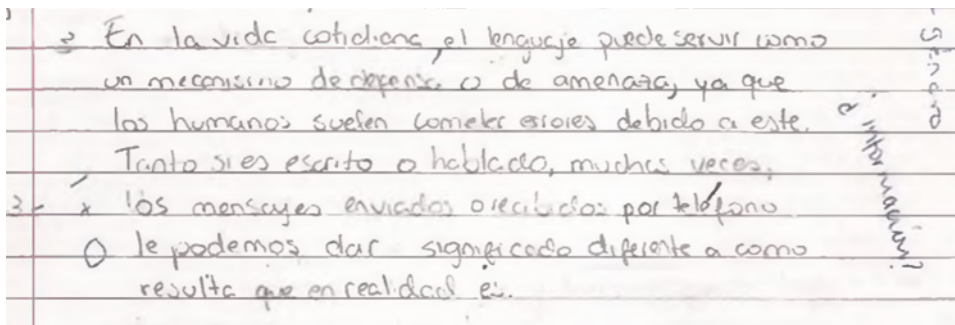 En la vida cotidiana, el lenguaje puede servir como
un mecanismo de defensa o de amenaza, ya que
los humanos suelen cometer errores debido a este.
Tanto si es escrito o hablado, muchas veces,
3- x los mensajes enviados o recibidos por teléfono
le podemos dar significado diferente a como
resulta que en realidad es.
¿información?